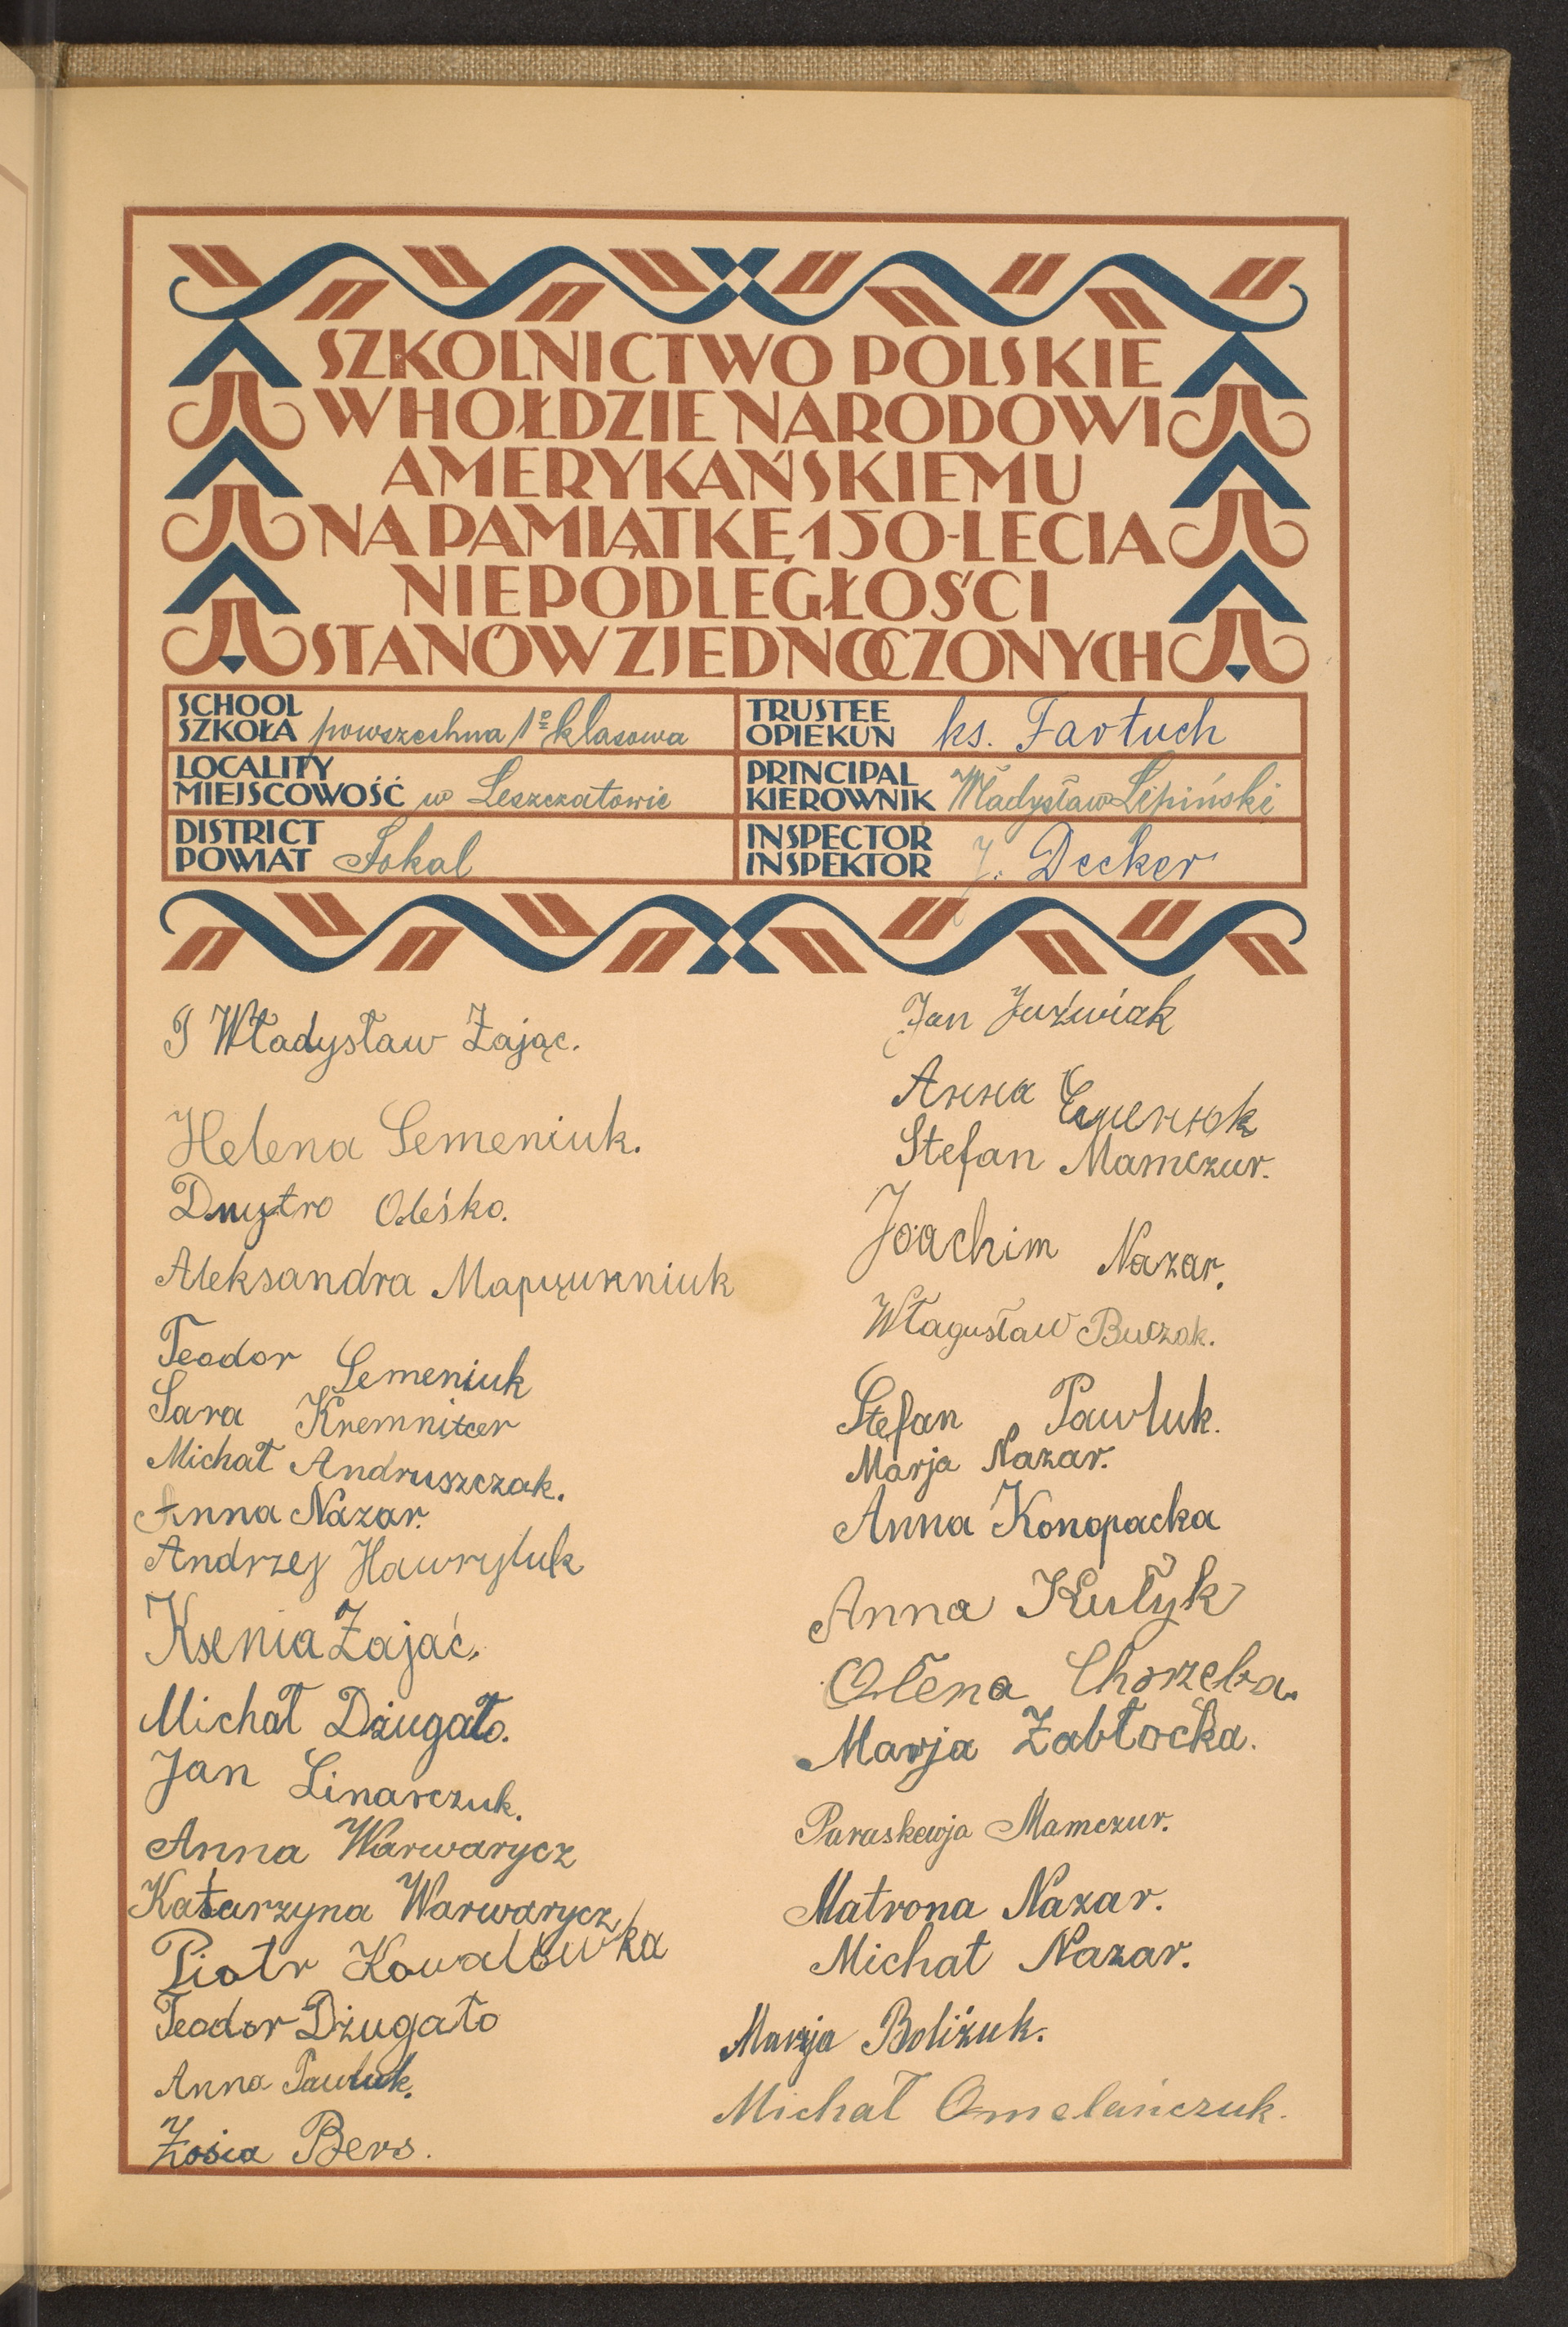 SZKOLNICTWO POLSKIE
W HOŁDZIE NARODOWI
AMERYKAŃSKIEMU
NA PAMIĄTKĘ 150-LECIA
NIEPODLEGŁOŚCI
STANÓW ZJEDNOCZONYCH
SCHOOL
SZKOŁA powszechna 1no klasowa
TRUSTEE
OPIEKUN ks. Fartuch
LOCALITY
MIEJSCOWOŚĆ w Leszczatowie
PRINCIPAL
KIEROWNIK Władysław Lipiński
DISTRICT
POWIAT Sokal
INSPECTOR
INSPEKTOR J. Decker
I Władysław Zając.
Helena Semeniuk.
Dmytro Oleśko.
Aleksandra
Teodor Semeniuk
Sara Kremnitcer
Michał Andruszczak.
Anna Nazar.
Andrzej Hawryluk
Ksenia Zajać.
Michał Dżugało.
Jan Linarczuk.
Anna Warwarycz
Katarzyna Warwarycz
Piotr Kowalówka
Teodor Dżugało
Anna Pawluk.
Zosia Bers.
Jan Juźwiak
Anna
Stefan Mamczur.
Joachim Nazar.
Włagusław Buczak.
Stefan Pawluk.
Marja Nazar.
Anna Konopacka
Anna Kułyk
Ołena Chorzeba.
Marja Zabłocka.
Paraskewja Mamczur.
Matrona Nazar.
Michał Nazar.
Marja Boliżuk.
Michał Omelańczuk.